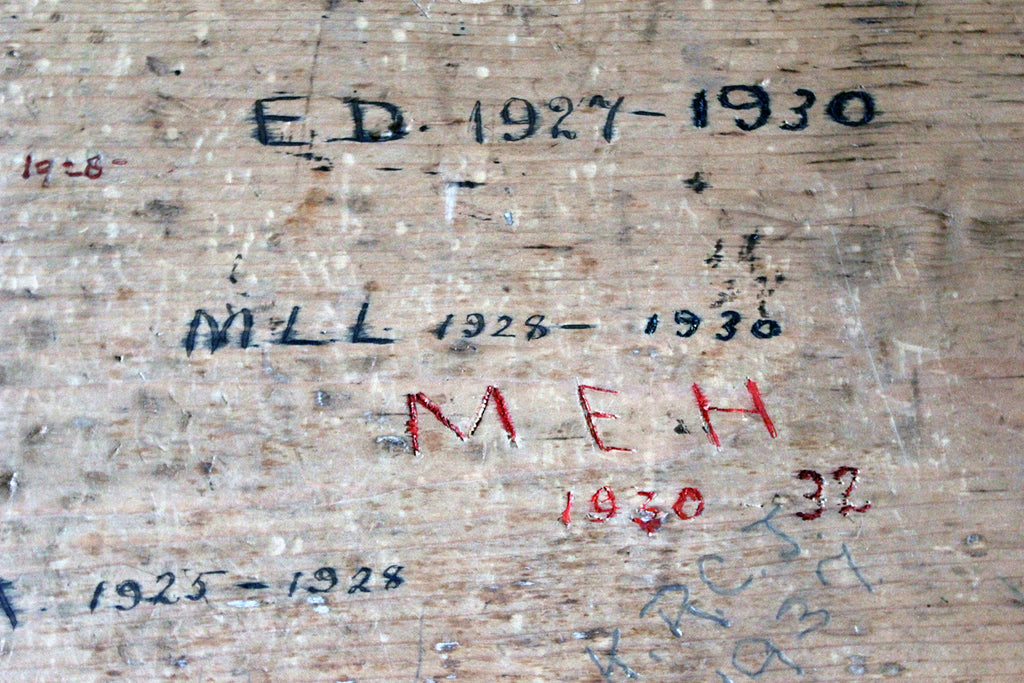 E.D. 1927-1930
1928-
MLL 1928- 1930
M E H
1930 32
1925-1928
K.R.C.J.